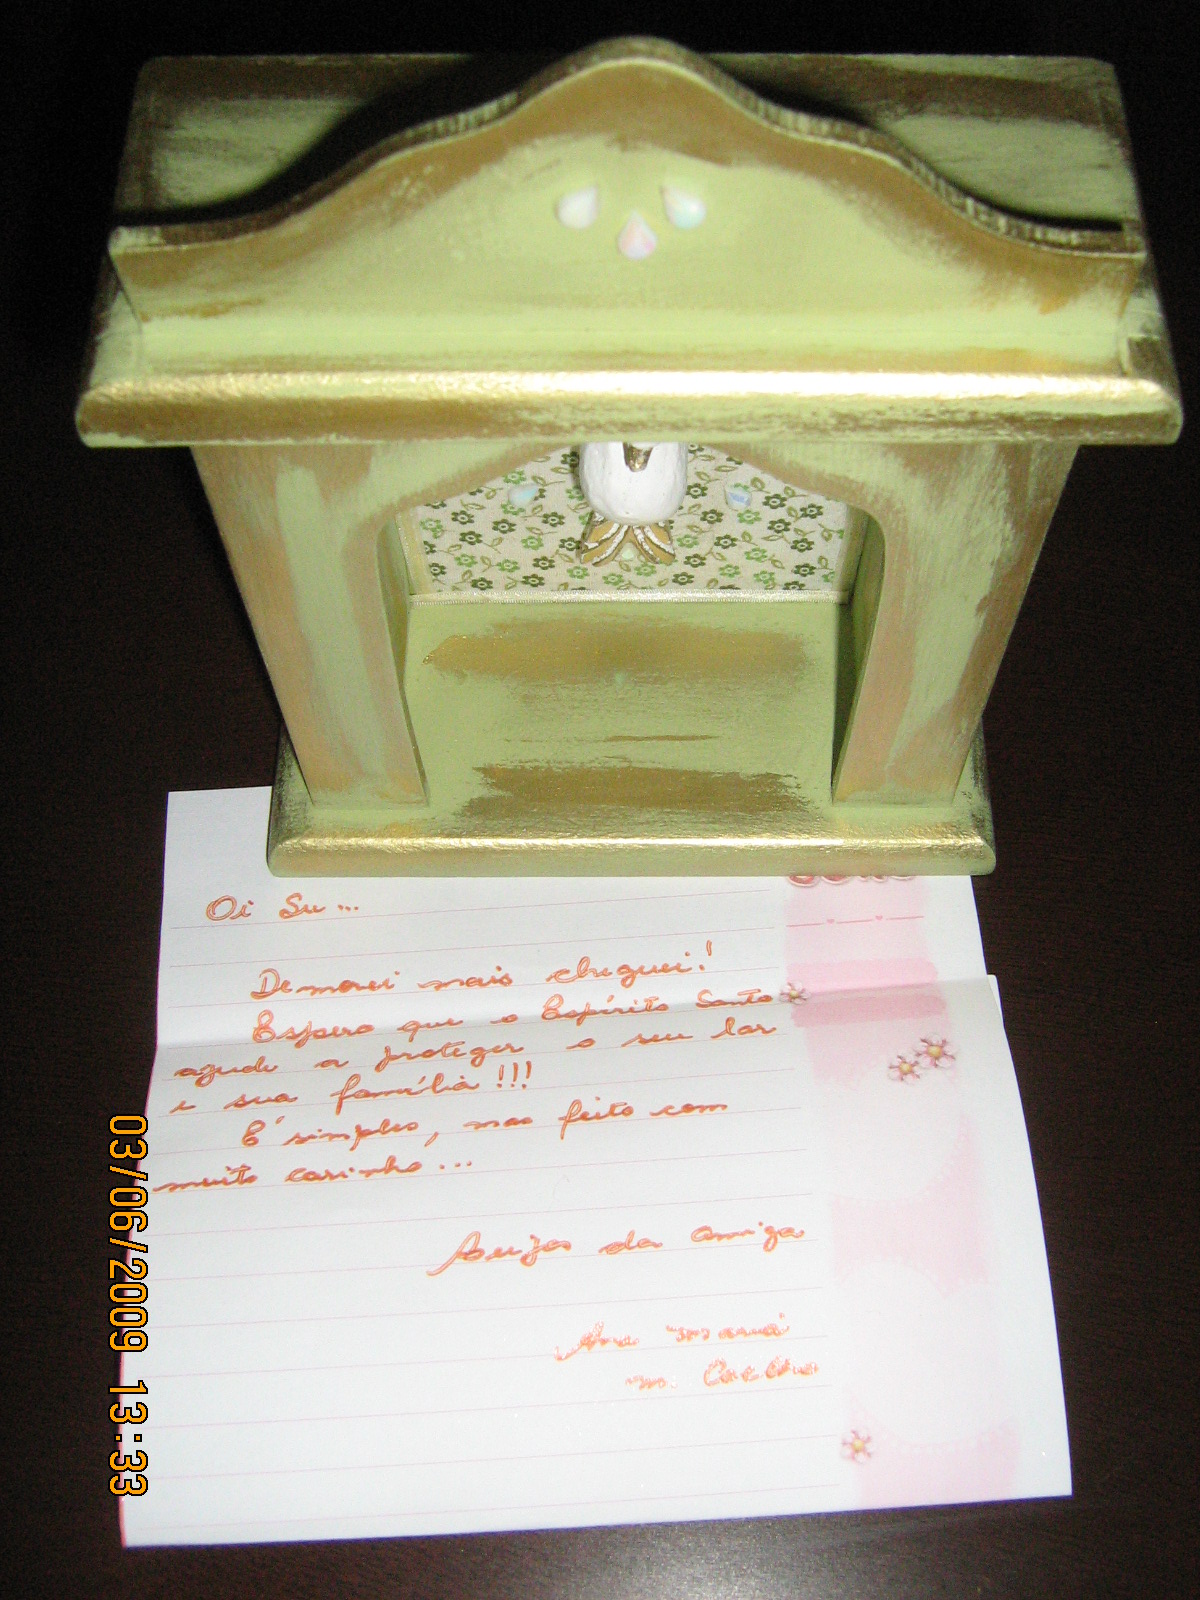 Oi Su...
Demorei mais cheguei!
Espero que o Espírito Santo
ajude a proteger o seu lar
e sua família!!!
É simples, mas feito com
muito carinho...
Beijos da amiga
Ana Maria
m.
03/06/2009 13:33